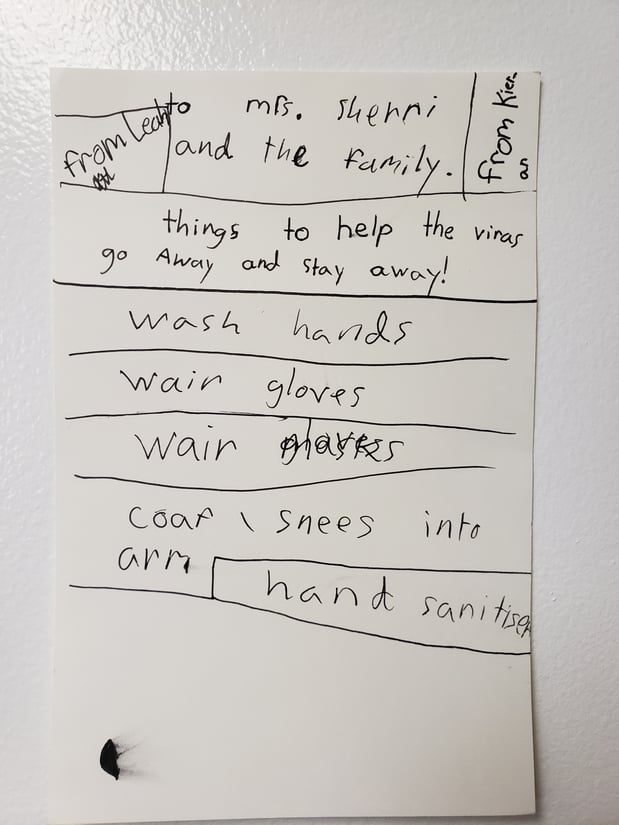 from Leah
to mrs. Sherri
and the family.
from Kieran
things to help the viras
go Away and Stay away!
wash hands
wair gloves
wair masks
coaf \ snees into
arm
hand sanitiser